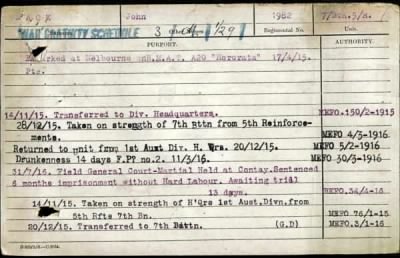 John 1982 7/Btn.5/R.
WAR GRATUITY SCHEDULE 3 1/29
Regimental No.
PURPORT. AUTHORITY.
Embarked at Melbourne on H.M.A.T. A20 "Hororata" 17/4/15.
Pte.
14/11/15. Transferred to Div. Headquarters. MEFO.150/2-1915
28/12/15. Taken on strength of 7th Bttn from 5th Reinforce- MEFO 4/3-1916
ments.
Returned to unit from 1st Aust Div. H. Qrs. 20/12/15. MEFO 5/2-1916
Drunkenness 14 days F.P? no.2. 11/3/16. MEFO 30/3-1916
31/7/16. Field General Court-Martial Held at Contay. Sentenced
6 months imprisonment without Hard Labour. Awaiting trial
13 days. REBO.34/4-16
14/11/15. Taken on strength of H'Qrs 1st Aust.Divn. from
5th Rfts 7th Bn. MEFO.76/1-15
20/12/15. Transferred to 7th Battn. (G.D) MEFO.3/1-16